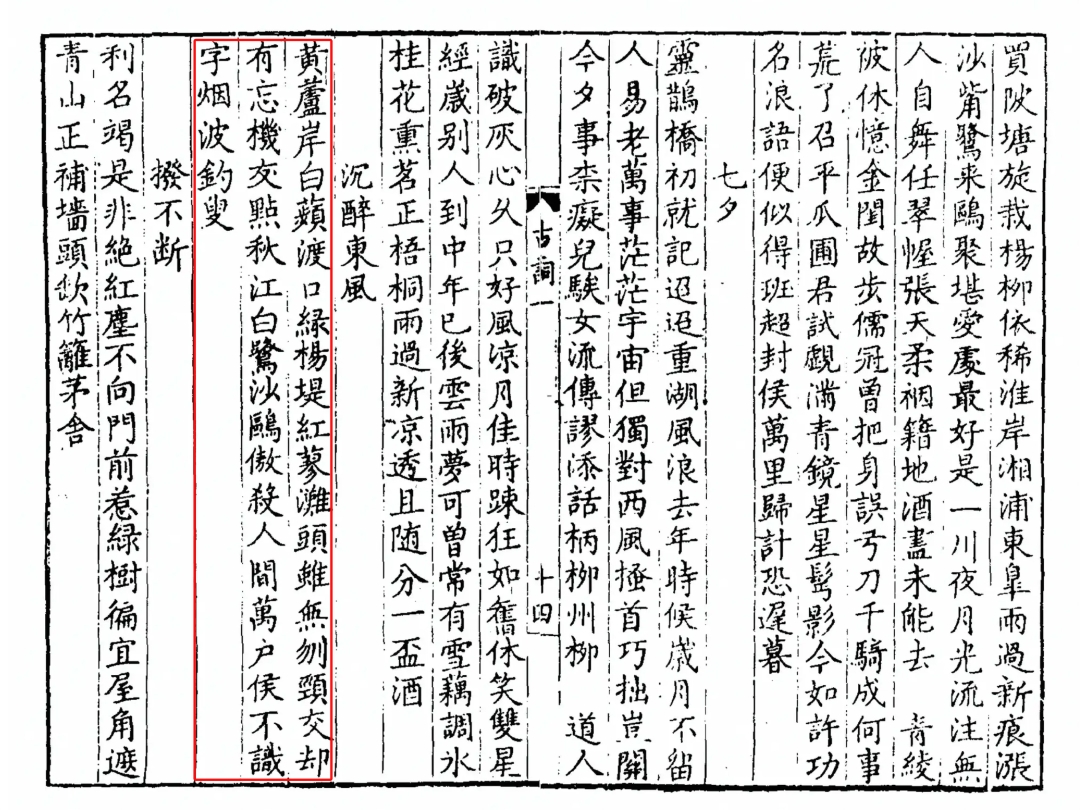 買陂塘旋栽楊柳依稀淮岸湘浦東臯雨過新痕漲
沙觜鷺来鷗聚堪愛處最好是一川夜月光流注無
人自舞任翠幄張天柔裀籍地酒盡未能去　青綾
被休憶金閨故步儒冠曽把身誤弓刀千騎成何事
荒了召平瓜圃君試覷滿青鏡星星髩影今如許功
名浪語便似得班超封侯萬里歸計恐遲暮
七夕
靈鵲橋初就記迢迢重湖風浪去年時候歲月不留
人易老萬事茫茫宇宙但獨對西風搔首巧拙豈關
今夕事柰癡兒騃女流傳謬添話柄柳州柳　道人
識破灰心乆只好風凉月佳時踈狂如舊休笑雙星
經歲别人到中年已後雲雨夢可曽常有雪藕調氷
桂花熏茗正梧桐雨過新凉透且随分一盃酒
古詞一
十四
沉醉東風
黄蘆岸白蘋渡口緑楊堤紅蓼灘頭雖無刎頸交却
有忘機友點秋江白鷺沙鷗傲殺人間萬户侯不識
字烟波釣叟
撥不断
利名竭是非絶紅塵不向門前惹緑樹徧宜屋角遮
青山正補墻頭缺竹籬茅舍